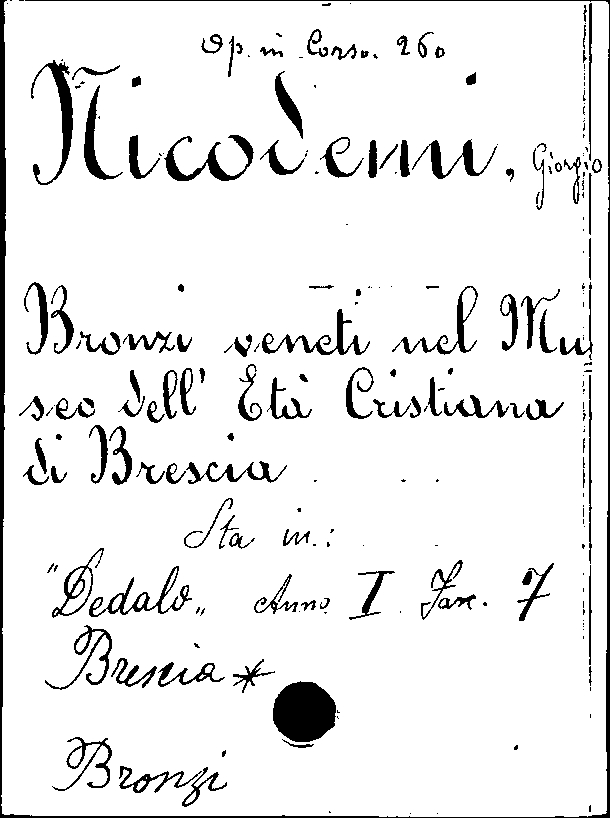 Op. in Corso. 260
Nicodemi, Giorgio
Bronzi veneti nel Mu
seo dell' Età Cristiana
di Brescia
Sta in:
"Dedalo„ Anno I Fasc. 7
Brescia *
Bronzi